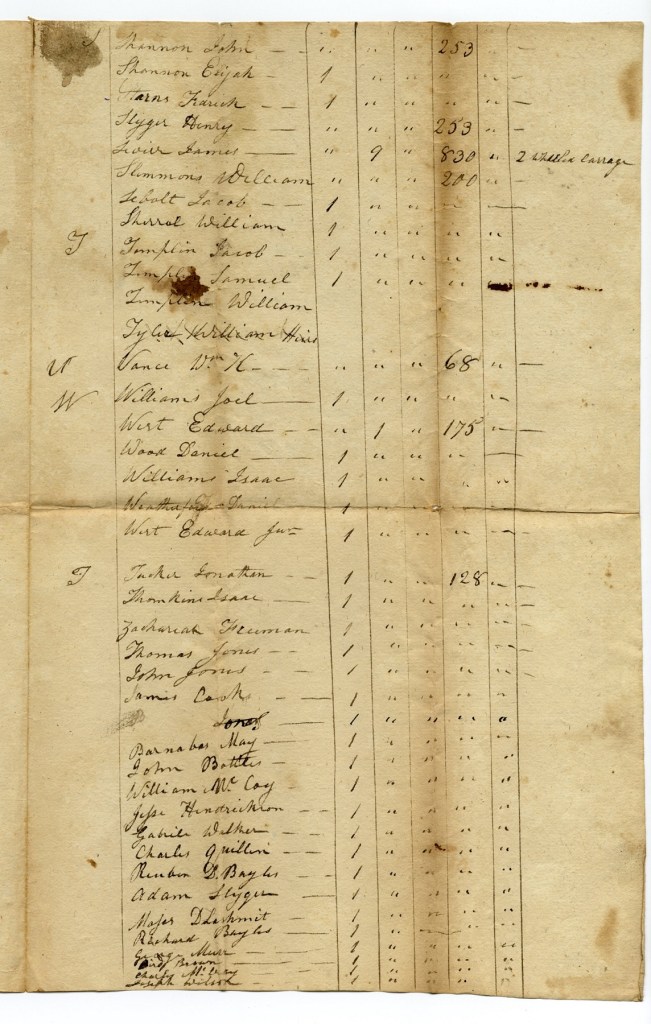 S Shannon John — — " " " 253 " —
Shannon Elijah — 1 " " " " —
Starns Fedrick — — 1 " " " " —
Slyger Henry — — " " " 253 " —
Sevier James — — " 9 " 830 " 2 wheeled Carrage
Slimmons William " " " 200 " —
Sebolt Jacob — — 1 " " " " —
Sherrol William 1 " " " "
T Templin Jacob — 1 " " " " —
Templin Samuel 1 " " " "
Templin William
Tyler William
V Vance Wm K — — " " " 68 " —
W Williams Joel — 1 " " " " —
West Edward — " 1 " 175 " —
Wood Daniel — 1 " " " " —
Williams Isaac 1 " " " " —
Weatherford Daniel 1 " " " " —
West Edward Jun 1 " " " " —
T Tucker Jonathan — — 1 " " 128 " —
Thomkins Isaac — — 1 " " " " —
Zachariah Freeman 1 " " " " —
Thomas Jones — — 1 " " " " —
John Jones — — 1 " " " " —
James Cook — — 1 " " " "
Jones — 1 " " " "
Barnabas May — 1 " " " "
John Bottles — 1 " " " "
William Mc Coy 1 " " " "
Jesse Hendrickson — 1 " " " "
Gabriel Walker — — 1 " " " "
Charles Quillin — 1 " " " "
Reuben D. Bayles — 1 " " " "
Adam Slyger — 1 " " " "
Major D Lashmit — 1 " " " "
Richard Bayles — 1 " " " "
George Murr — 1 " " " "
Brown — 1 " " " "
Charles — 1 " " " "
Joseph Wilson — 1 " " " "